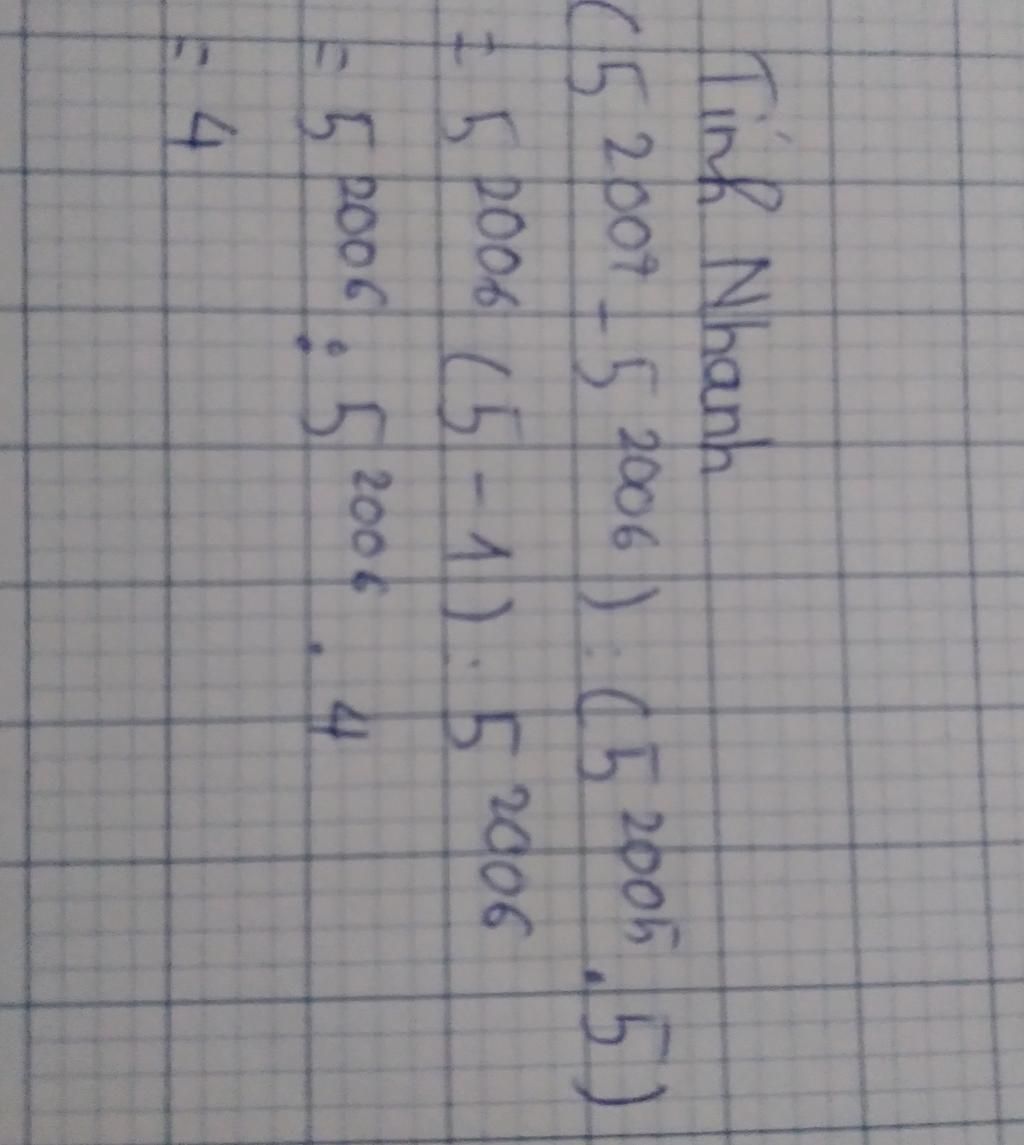 Tính Nhanh
(5 2007 - 5 2006) : (5 2005 . 5)
= 5 2006 (5 - 1) : 5 2006
= 5 2006 : 5 2006 . 4
= 4